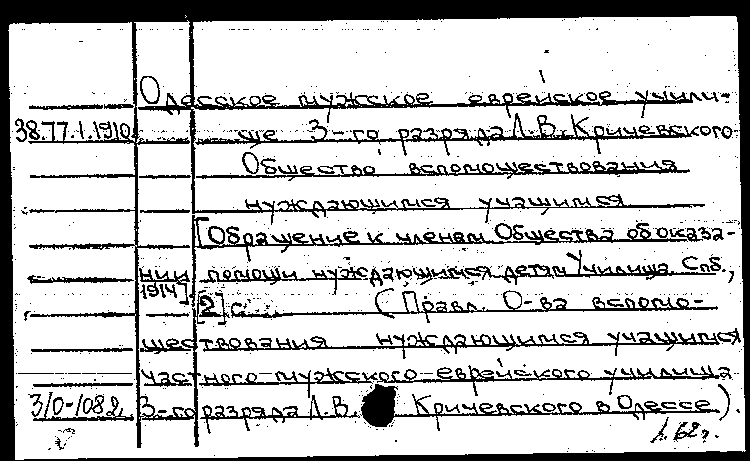 Одесское мужское еврейское учили-
38.77.1.1910. ще 3-го разряда Л.В. Кричевского
Общество вспомоществования
нуждающимся учащимся
[Обращение к членам Общества об оказа-
нии помощи нуждающимся детям Училища. Спб.,
1914].
[2] с. (Правл. О-ва вспомо-
ществования нуждающимся учащимся
частного мужского еврейского училища
3/0-1082. 3-го разряда Л.В. Кричевского в Одессе).